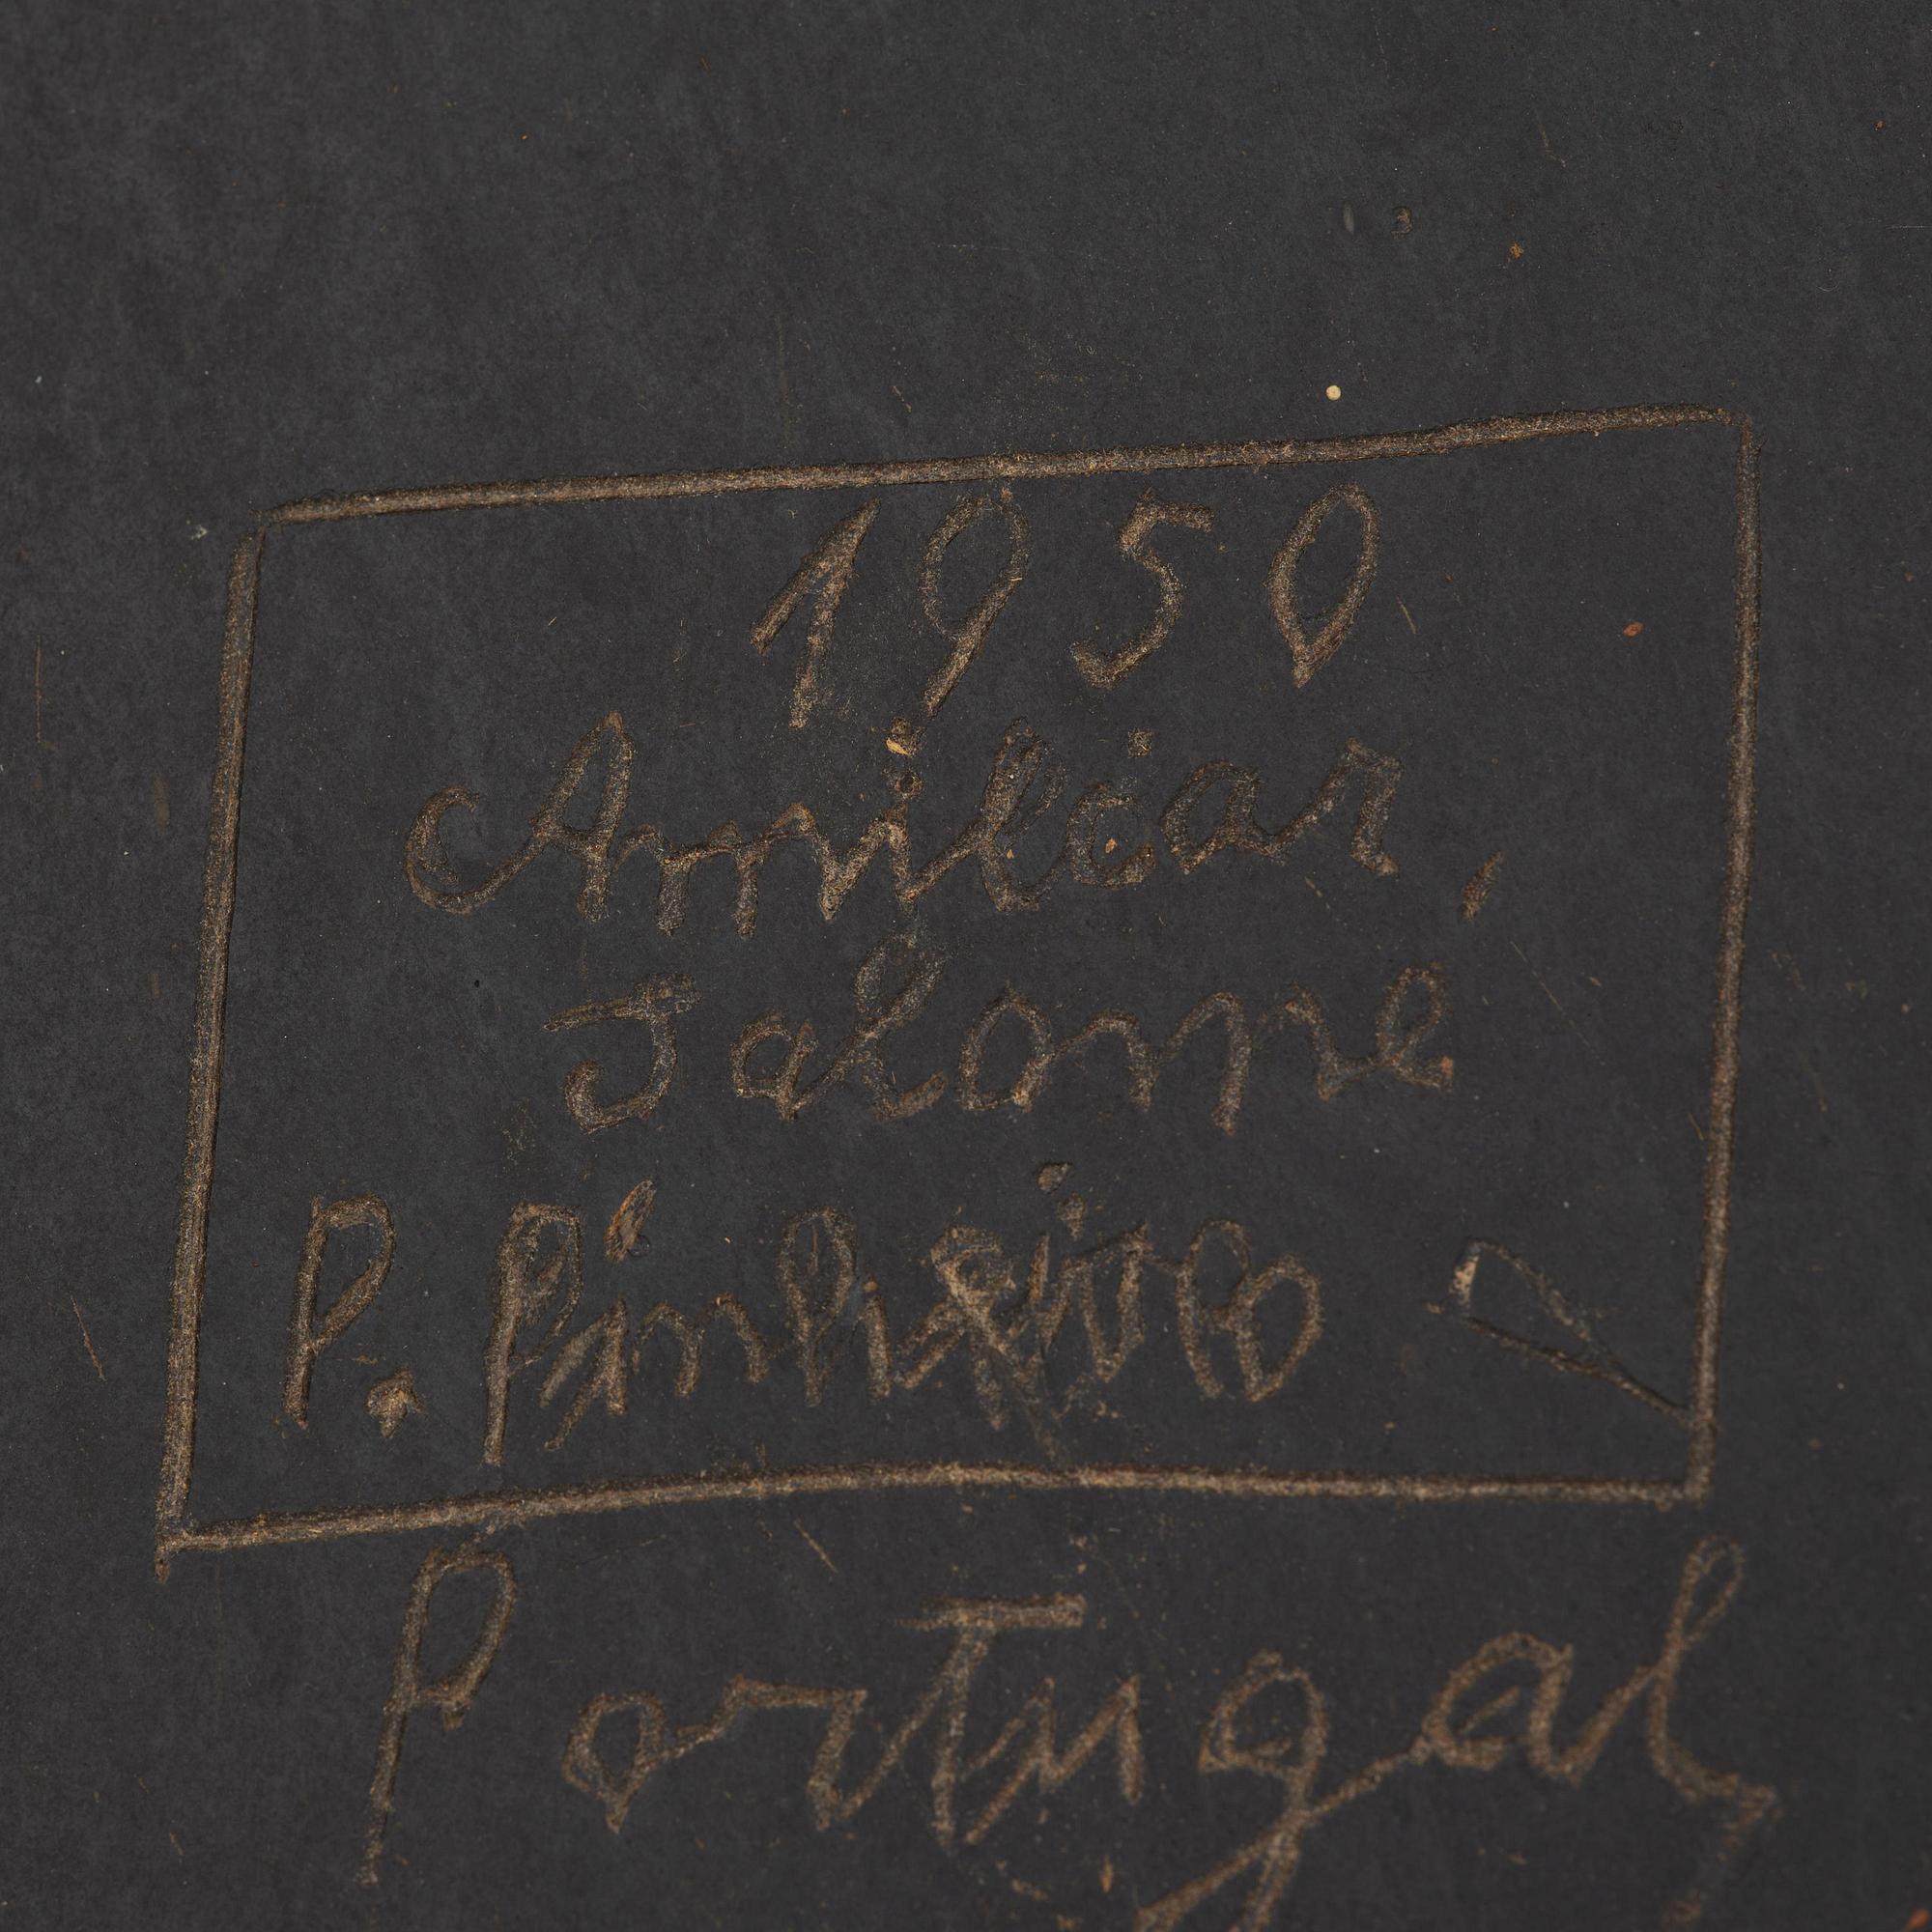 1950
Amilcar,
Salomé
P. Pinheiro
Portugal